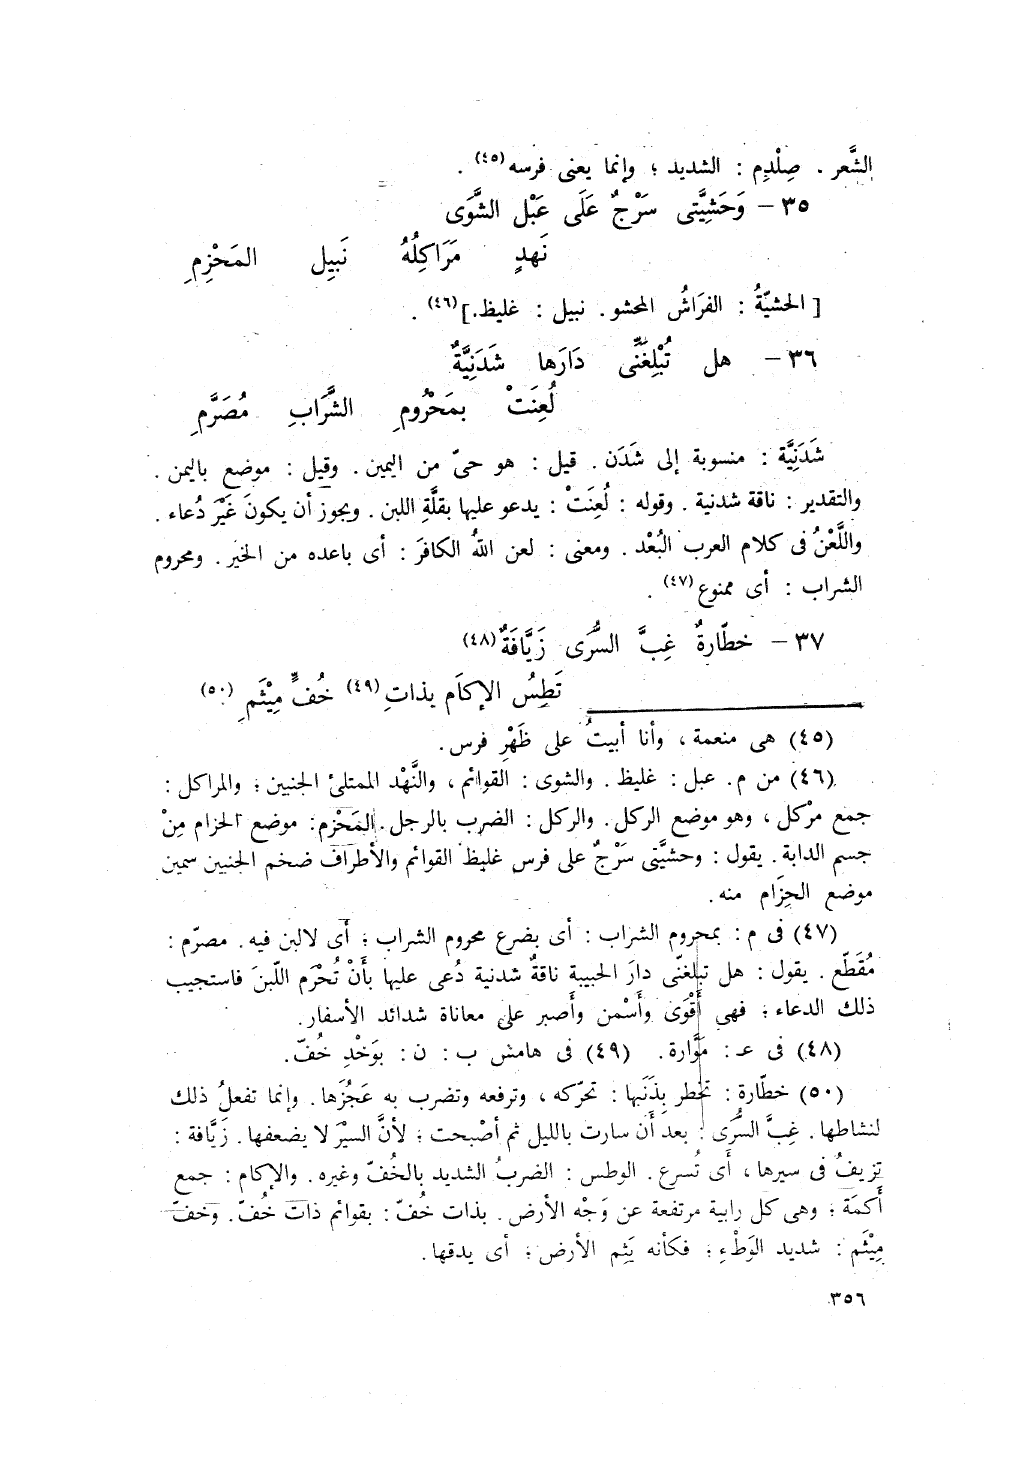 الشَّعر . صِلْدِم : الشديد ؛ وإنما يعنى فرسه (٤٥) .
٣٥ – وَحَشِيَّتى سَرْجٌ عَلَى عَبْل الشَّوَى
نَهدٍ مَرَاكِلُهُ نَبِيل المَحْزِمِ
[ الحشيّةُ : الفرَاشُ المحشو . نبيل : غليظ . ] (٤٦) .
٣٦ – هل تُبْلِغَنِّى دَارَها شَدَنِيَّةٌ
لُعِنَتْ بمَحْرُومِ الشَّرَابِ مُصَرَّمِ
شَدَنِيَّة : منسوبة إلى شَدَن . قيل : هو حىّ من اليمين . وقيل : موضع باليمن .
والتقدير : ناقة شدنية . وقوله : لُعِنَتْ : يدعو عليها بقلَّةِ اللبن . ويجوز أن يكونَ غَيْرَ دُعاء .
واللَّعْنُ فى كلام العرب البُعْد . ومعنى : لعن اللهُ الكافرَ : أى باعده من الخير . ومحروم
الشراب : أى ممنوع (٤٧) .
٣٧ – خطّارةٌ غِبَّ السُّرَى زَيَّافَةٌ (٤٨)
تَطِسُ الإكَام بذاتِ (٤٩) خُفٍّ مِيْثَمِ (٥٠)
(٤٥) هى منعمة ، وأنا أبيتُ على ظَهْرِ فرس .
(٤٦) من م . عبل : غليظ . والشوى : القوائم ، والنَّهْد الممتلئ الجنبين ؛ والمراكل :
جمع مرْكل ، وهو موضع الركل . والركل : الضرب بالرجل . المَحْزِم : موضع الحزام مِنْ
جسم الدابة . يقول : وحشيَّتى سَرْجٌ على فرس غليظ القوائم والأطراف ضخم الجنبين سمين
موضع الحِزَام منه .
(٤٧) فى م : بمحروم الشراب : أى بضرع محروم الشراب ؛ أى لالبن فيه . مصرّم :
مُقَطّع . يقول : هل تبلغنّى دارَ الحبيبة ناقةٌ شدنية دُعى عليها بأَنْ تُحْرَم اللّبنَ فاستجيب
ذلك الدعاء ؛ فهى أَقْوَى وأَسْمن وأَصبر على معاناة شدائد الأسفار .
(٤٨) فى ع : مَوَّارة . (٤٩) فى هامش ب : ن : بوَخْدِ خُفّ .
(٥٠) خطّارة : تخطر بِذَنَبها : تحرّكه ، وترفعه وتضرب به عَجُزَها . وإنما تفعلُ ذلك
لنشاطها . غِبَّ السُّرَى : بعد أَن سارت بالليل ثم أصْبحت ؛ لأنَّ السيْرَ لا يضعفها . زَيَّافة :
تزيفُ فى سيرها ، أَى تُسرع . الوطس : الضربُ الشديد بالخُفّ وغيره . والإكام : جمع
أَكمَة ؛ وهى كل رابية مرتفعة عن وَجْه الأرض . بذات خُفّ : بقوائم ذات خُفّ . وخفّ
مِيْثَم : شديد الوَطْءِ ؛ فكأنه يَثِم الأرض ؛ أى يدقها .
٣٥٦